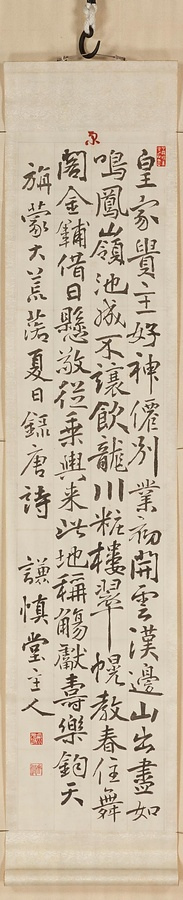 皇家貴主好神僊別業初開雲漢邊山出盡如
鳴鳳嶺池成不讓飲龍川粧樓翠幌教春住舞
閣金鋪借日懸敬從乘輿来此地稱觴獻壽樂鈞天
旃蒙大荒落夏日録唐詩 謙慎堂主人